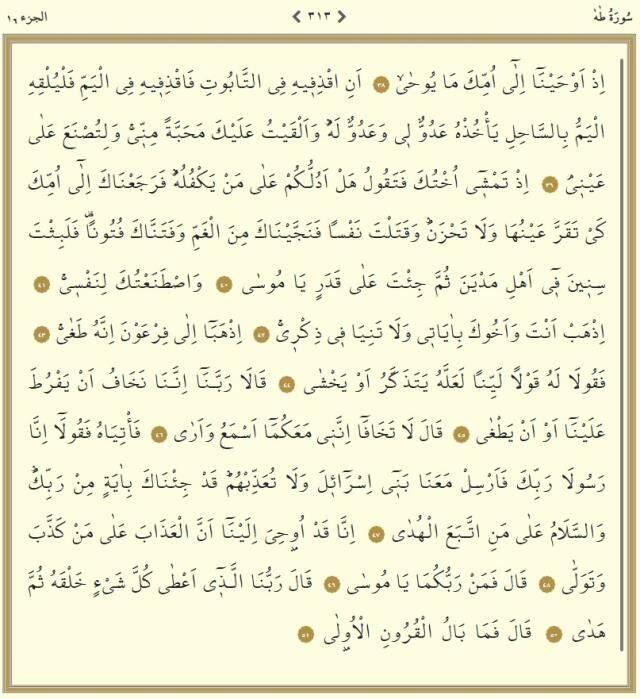 سُورَةُ طٰهٰ ٣١٣ الجزء ١٦
اِذْ اَوْحَيْنَٓا اِلٰٓى اُمِّكَ مَا يُوحٰىۙ ٣٨ اَنِ اقْذِف۪يهِ فِي التَّابُوتِ فَاقْذِف۪يهِ فِي الْيَمِّ فَلْيُلْقِهِ
الْيَمُّ بِالسَّاحِلِ يَأْخُذْهُ عَدُوٌّ ل۪ي وَعَدُوٌّ لَهُۜ وَاَلْقَيْتُ عَلَيْكَ مَحَبَّةً مِنّ۪يۚ وَلِتُصْنَعَ عَلٰى
عَيْن۪يۢ ٣٩ اِذْ تَمْش۪ٓي اُخْتُكَ فَتَقُولُ هَلْ اَدُلُّكُمْ عَلٰى مَنْ يَكْفُلُهُۜ فَرَجَعْنَاكَ اِلٰٓى اُمِّكَ
كَيْ تَقَرَّ عَيْنُهَا وَلَا تَحْزَنَۜ وَقَتَلْتَ نَفْسًا فَنَجَّيْنَاكَ مِنَ الْغَمِّ وَفَتَنَّاكَ فُتُونًا۠ فَلَبِثْتَ
سِن۪ينَ ف۪ٓي اَهْلِ مَدْيَنَ ثُمَّ جِئْتَ عَلٰى قَدَرٍ يَا مُوسٰى ٤٠ وَاصْطَنَعْتُكَ لِنَفْس۪يۚ ٤١
اِذْهَبْ اَنْتَ وَاَخُوكَ بِاٰيَات۪ي وَلَا تَنِيَا ف۪ي ذِكْر۪يۚ ٤٢ اِذْهَبَٓا اِلٰى فِرْعَوْنَ اِنَّهُ طَغٰىۚ ٤٣
فَقُولَا لَهُ قَوْلًا لَيِّنًا لَعَلَّهُ يَتَذَكَّرُ اَوْ يَخْشٰى ٤٤ قَالَا رَبَّنَٓا اِنَّنَا نَخَافُ اَنْ يَفْرُطَ
عَلَيْنَٓا اَوْ اَنْ يَطْغٰى ٤٥ قَالَ لَا تَخَافَٓا اِنَّن۪ي مَعَكُمَٓا اَسْمَعُ وَاَرٰى ٤٦ فَأْتِيَاهُ فَقُولَٓا اِنَّا
رَسُولَا رَبِّكَ فَاَرْسِلْ مَعَنَا بَن۪ٓي اِسْرَٓائ۪لَ وَلَا تُعَذِّبْهُمْۜ قَدْ جِئْنَاكَ بِاٰيَةٍ مِنْ رَبِّكَۜ
وَالسَّلَامُ عَلٰى مَنِ اتَّبَعَ الْهُدٰى ٤٧ اِنَّا قَدْ اُو۫حِيَ اِلَيْنَٓا اَنَّ الْعَذَابَ عَلٰى مَنْ كَذَّبَ
وَتَوَلّٰى ٤٨ قَالَ فَمَنْ رَبُّكُمَا يَا مُوسٰى ٤٩ قَالَ رَبُّنَا الَّذ۪ٓي اَعْطٰى كُلَّ شَيْءٍ خَلْقَهُ ثُمَّ
هَدٰى ٥٠ قَالَ فَمَا بَالُ الْقُرُونِ الْاُو۫لٰى ٥١